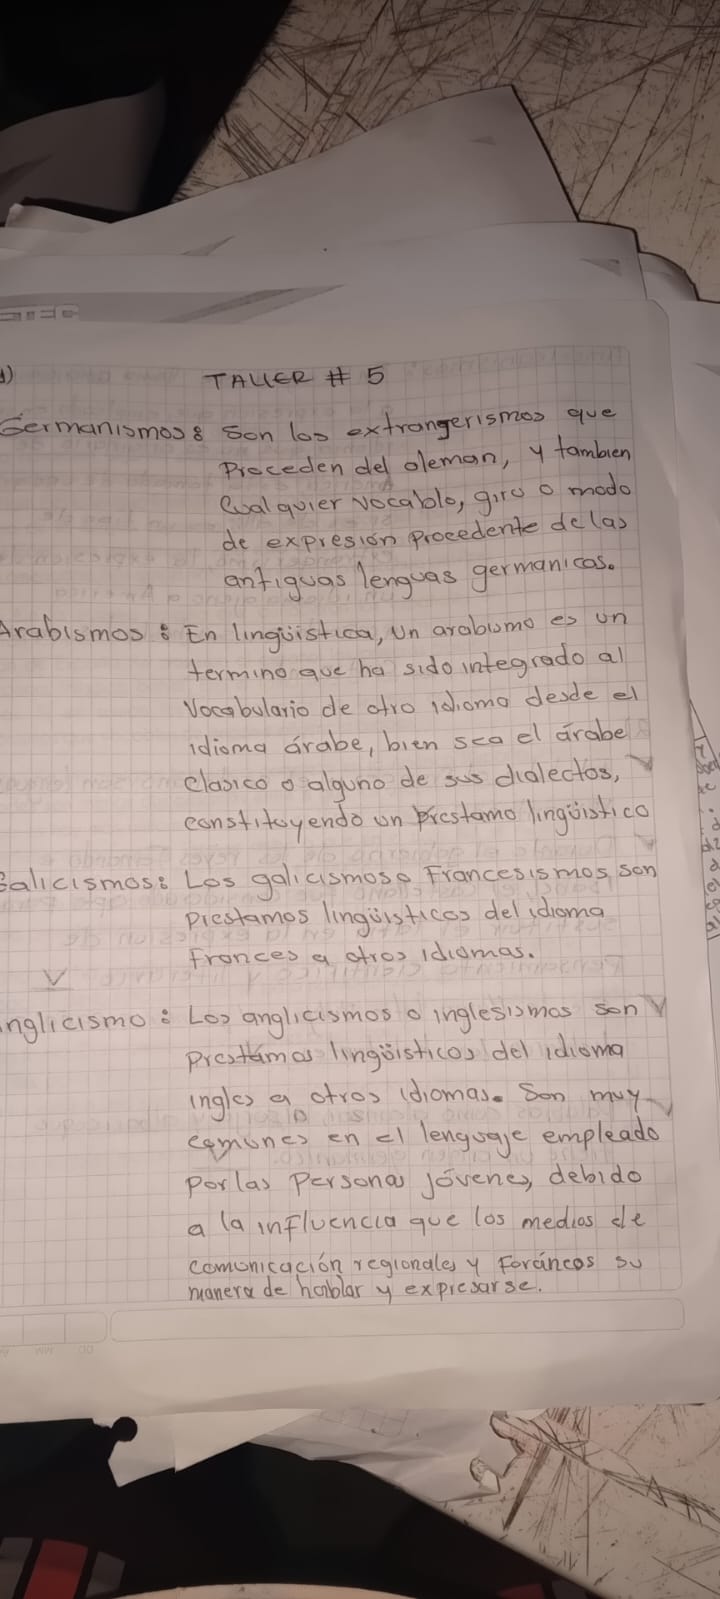 1)
TALLER # 5
Germanismos: Son los extrangerismos que
Proceden del aleman, y tambien
Cualquier vocablo, giro o modo
de expresión procedente de las
antiguas lenguas germanicas.
Arabismos: En lingüistica, Un arabismo es un
termino que ha sido integrado al
Vocabulario de otro idioma desde el
idioma árabe, bien sea el árabe
Clasico o alguno de sus dialectos,
constituyendo un Prestamo lingüistico
Galicismos: Los galicismos o Francesismos son
Prestamos lingüisticos del idioma
Frances a otros idiomas.
V
nglicismo: Los anglicismos o inglesismos son
Prestámos lingüisticos del idioma
ingles a otros idiomas. Son muy
comunes en el lenguaje empleado
Por las Personas jóvenes, debido
a la influencia que los medios de
comunicación regionales y Foráneos su
manera de hablar y expresarse.